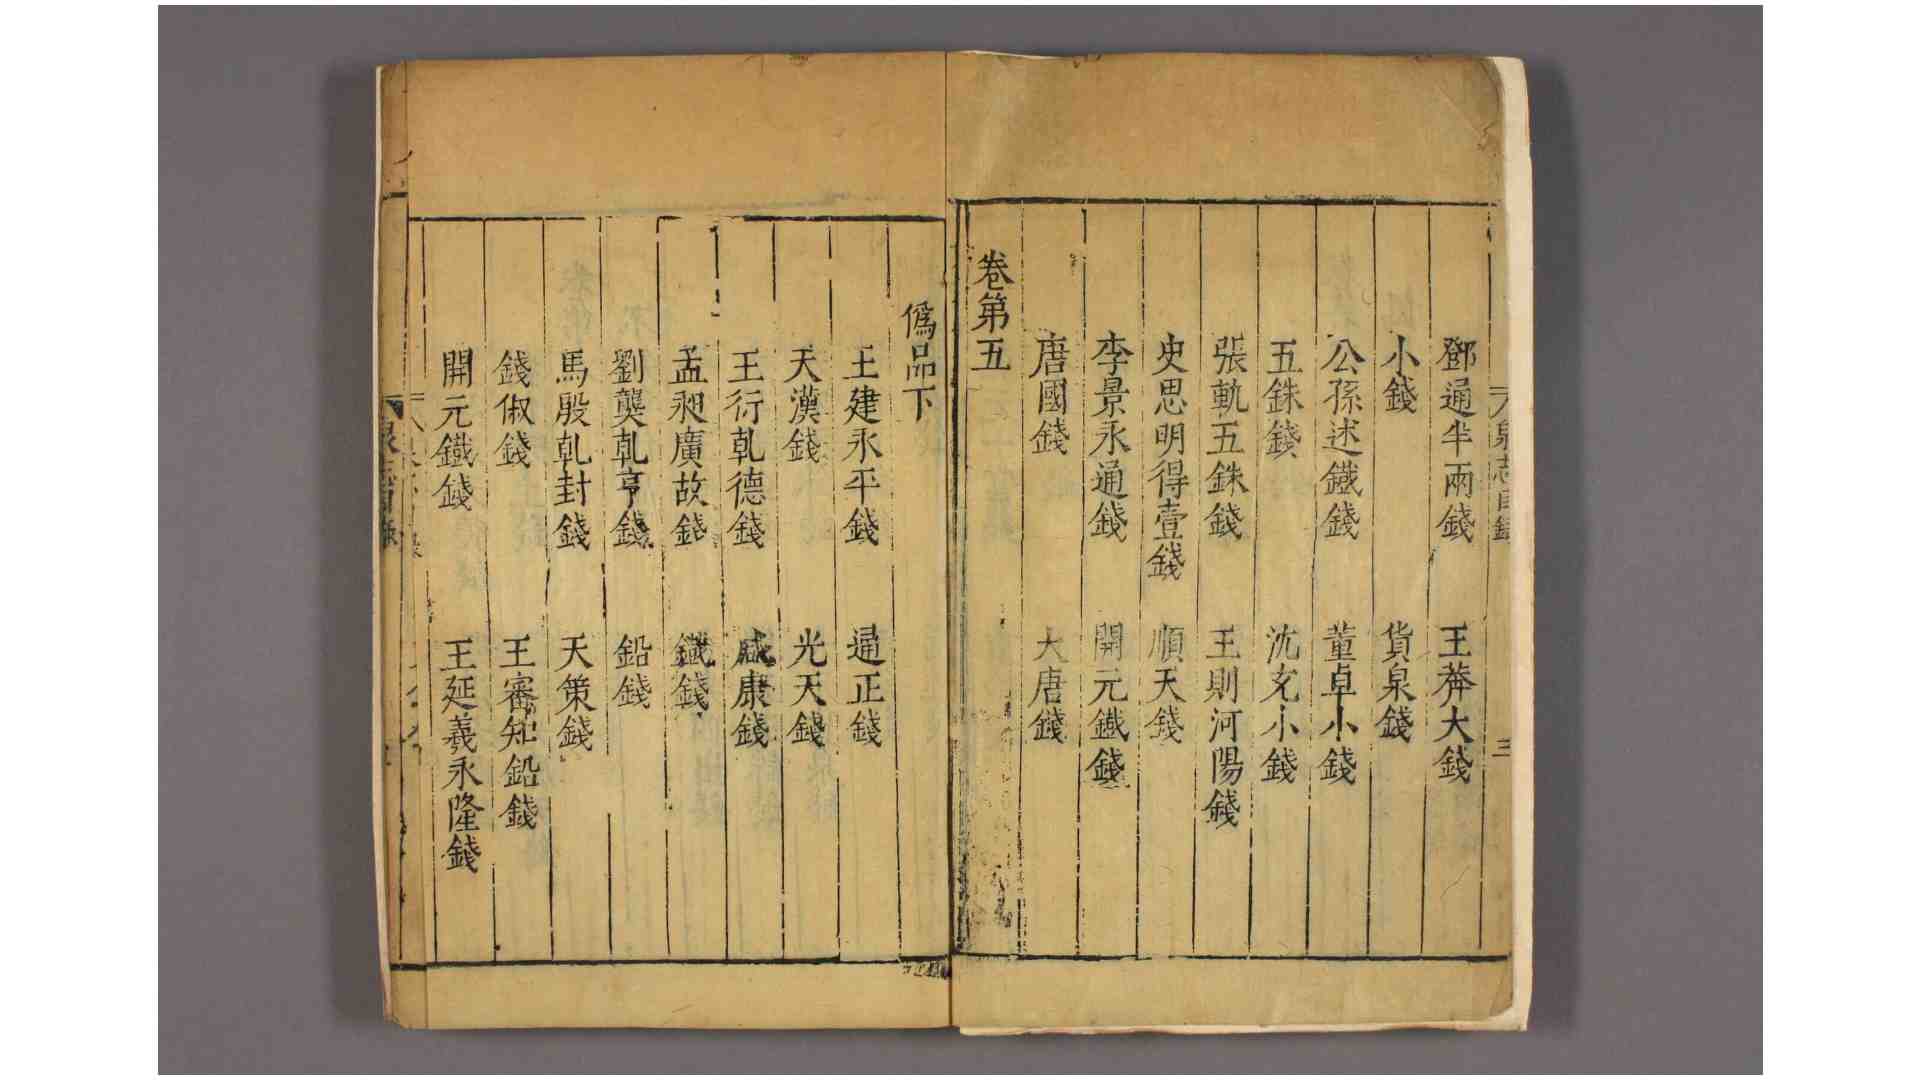 泉志目錄 三
鄧通半兩錢 王莽大錢
小錢 貨泉錢
公孫述鐵錢 董卓小錢
五銖錢 沈充小錢
張軌五銖錢 王則河陽錢
史思明得壹錢 順天錢
李景永通錢 開元鐵錢
唐國錢 大唐錢
卷第五
偽品下
王建永平錢 通正錢
天漢錢 光天錢
王衍乹德錢 咸康錢
孟昶廣政錢 鐵錢
劉龑乹亨錢 鉛錢
馬殷乹封錢 天策錢
錢俶錢 王審知鉛錢
開元鐵錢 王延羲永隆錢
泉志目錄